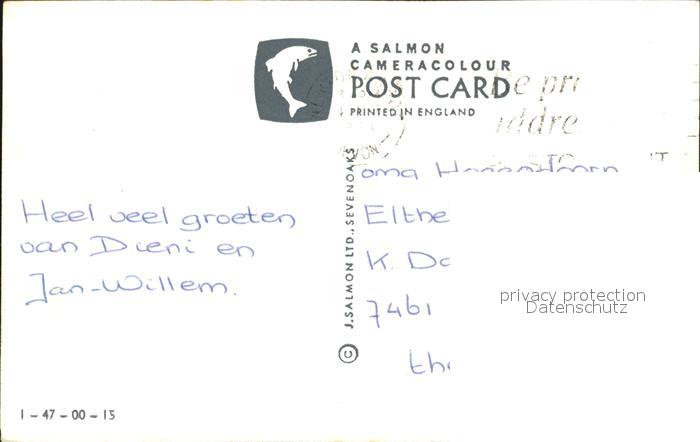 A SALMON
CAMERACOLOUR
POST CARD
PRINTED IN ENGLAND
Heel veel groeten
van Dieni en
Jan-Willem.
1 - 47 - 00 - 15
© J. SALMON LTD., SEVENOAKS
oma
Elthe
K. Do
7461
the
privacy protection
Datenschutz